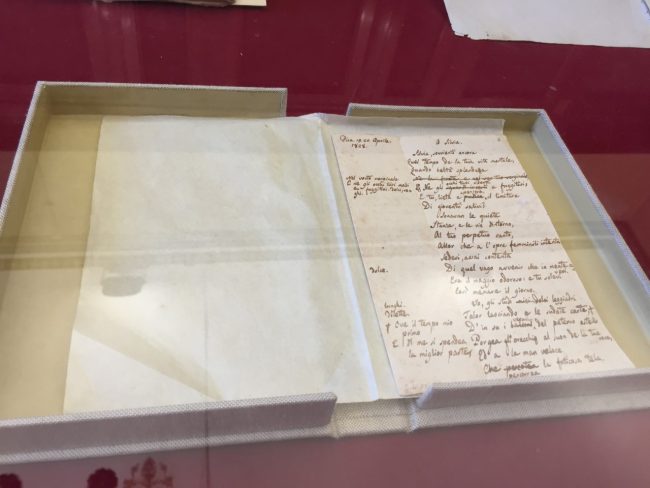 Pisa 19.20. Aprile.
1828.
A Silvia.
Silvia, sovvienti ancora
Quel tempo de la tua vita mortale,
Quando beltà splendea
Ne la fronte e nel sen tuo verginale,
E ne gli occhi tuoi e fuggitivi
E tu, lieta e pudica, il limitare
pensosa
Di gioventù salivi?
Sonavan le quiete
Stanze, e le vie dintorno,
Al tuo perpetuo canto,
Allor che a l'opre femminili intenta
Sedevi, assai contenta
dolce.
Di quel vago avvenir che in mente
Era il maggio odoroso: e tu solevi
Così menare il giorno.
lunghi.
Dilette.
Io, gli studi miei dolci leggiadri
Talor lasciando e le sudate carte,
† Ove il tempo mio
primo
E di me si spendea
la miglior parte,
D'in su i del paterno ostello
Porgea gl'orecchi al suon de la tua
voce,
Ed a la man veloce
Che percorrea la faticosa tela